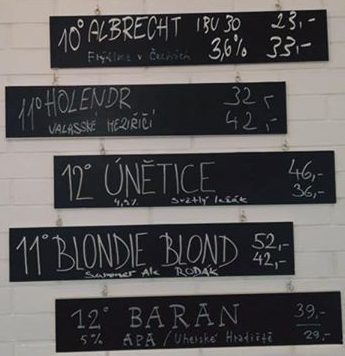 10° ALBRECHT IBU 30 23,-
Frýdlant v Čechách 3,6% 33,-
11° HOLENDR 32,-
VALAŠSKÉ MEZIŘÍČÍ 42,-
12° ÚNĚTICE 46,-
4,9% Světlý ležák 36,-
11° BLONDIE BLOND 52,-
Summer Ale RODÁK 42,-
12° BARAN 39,-
5% APA / Uherské Hradiště 29,-